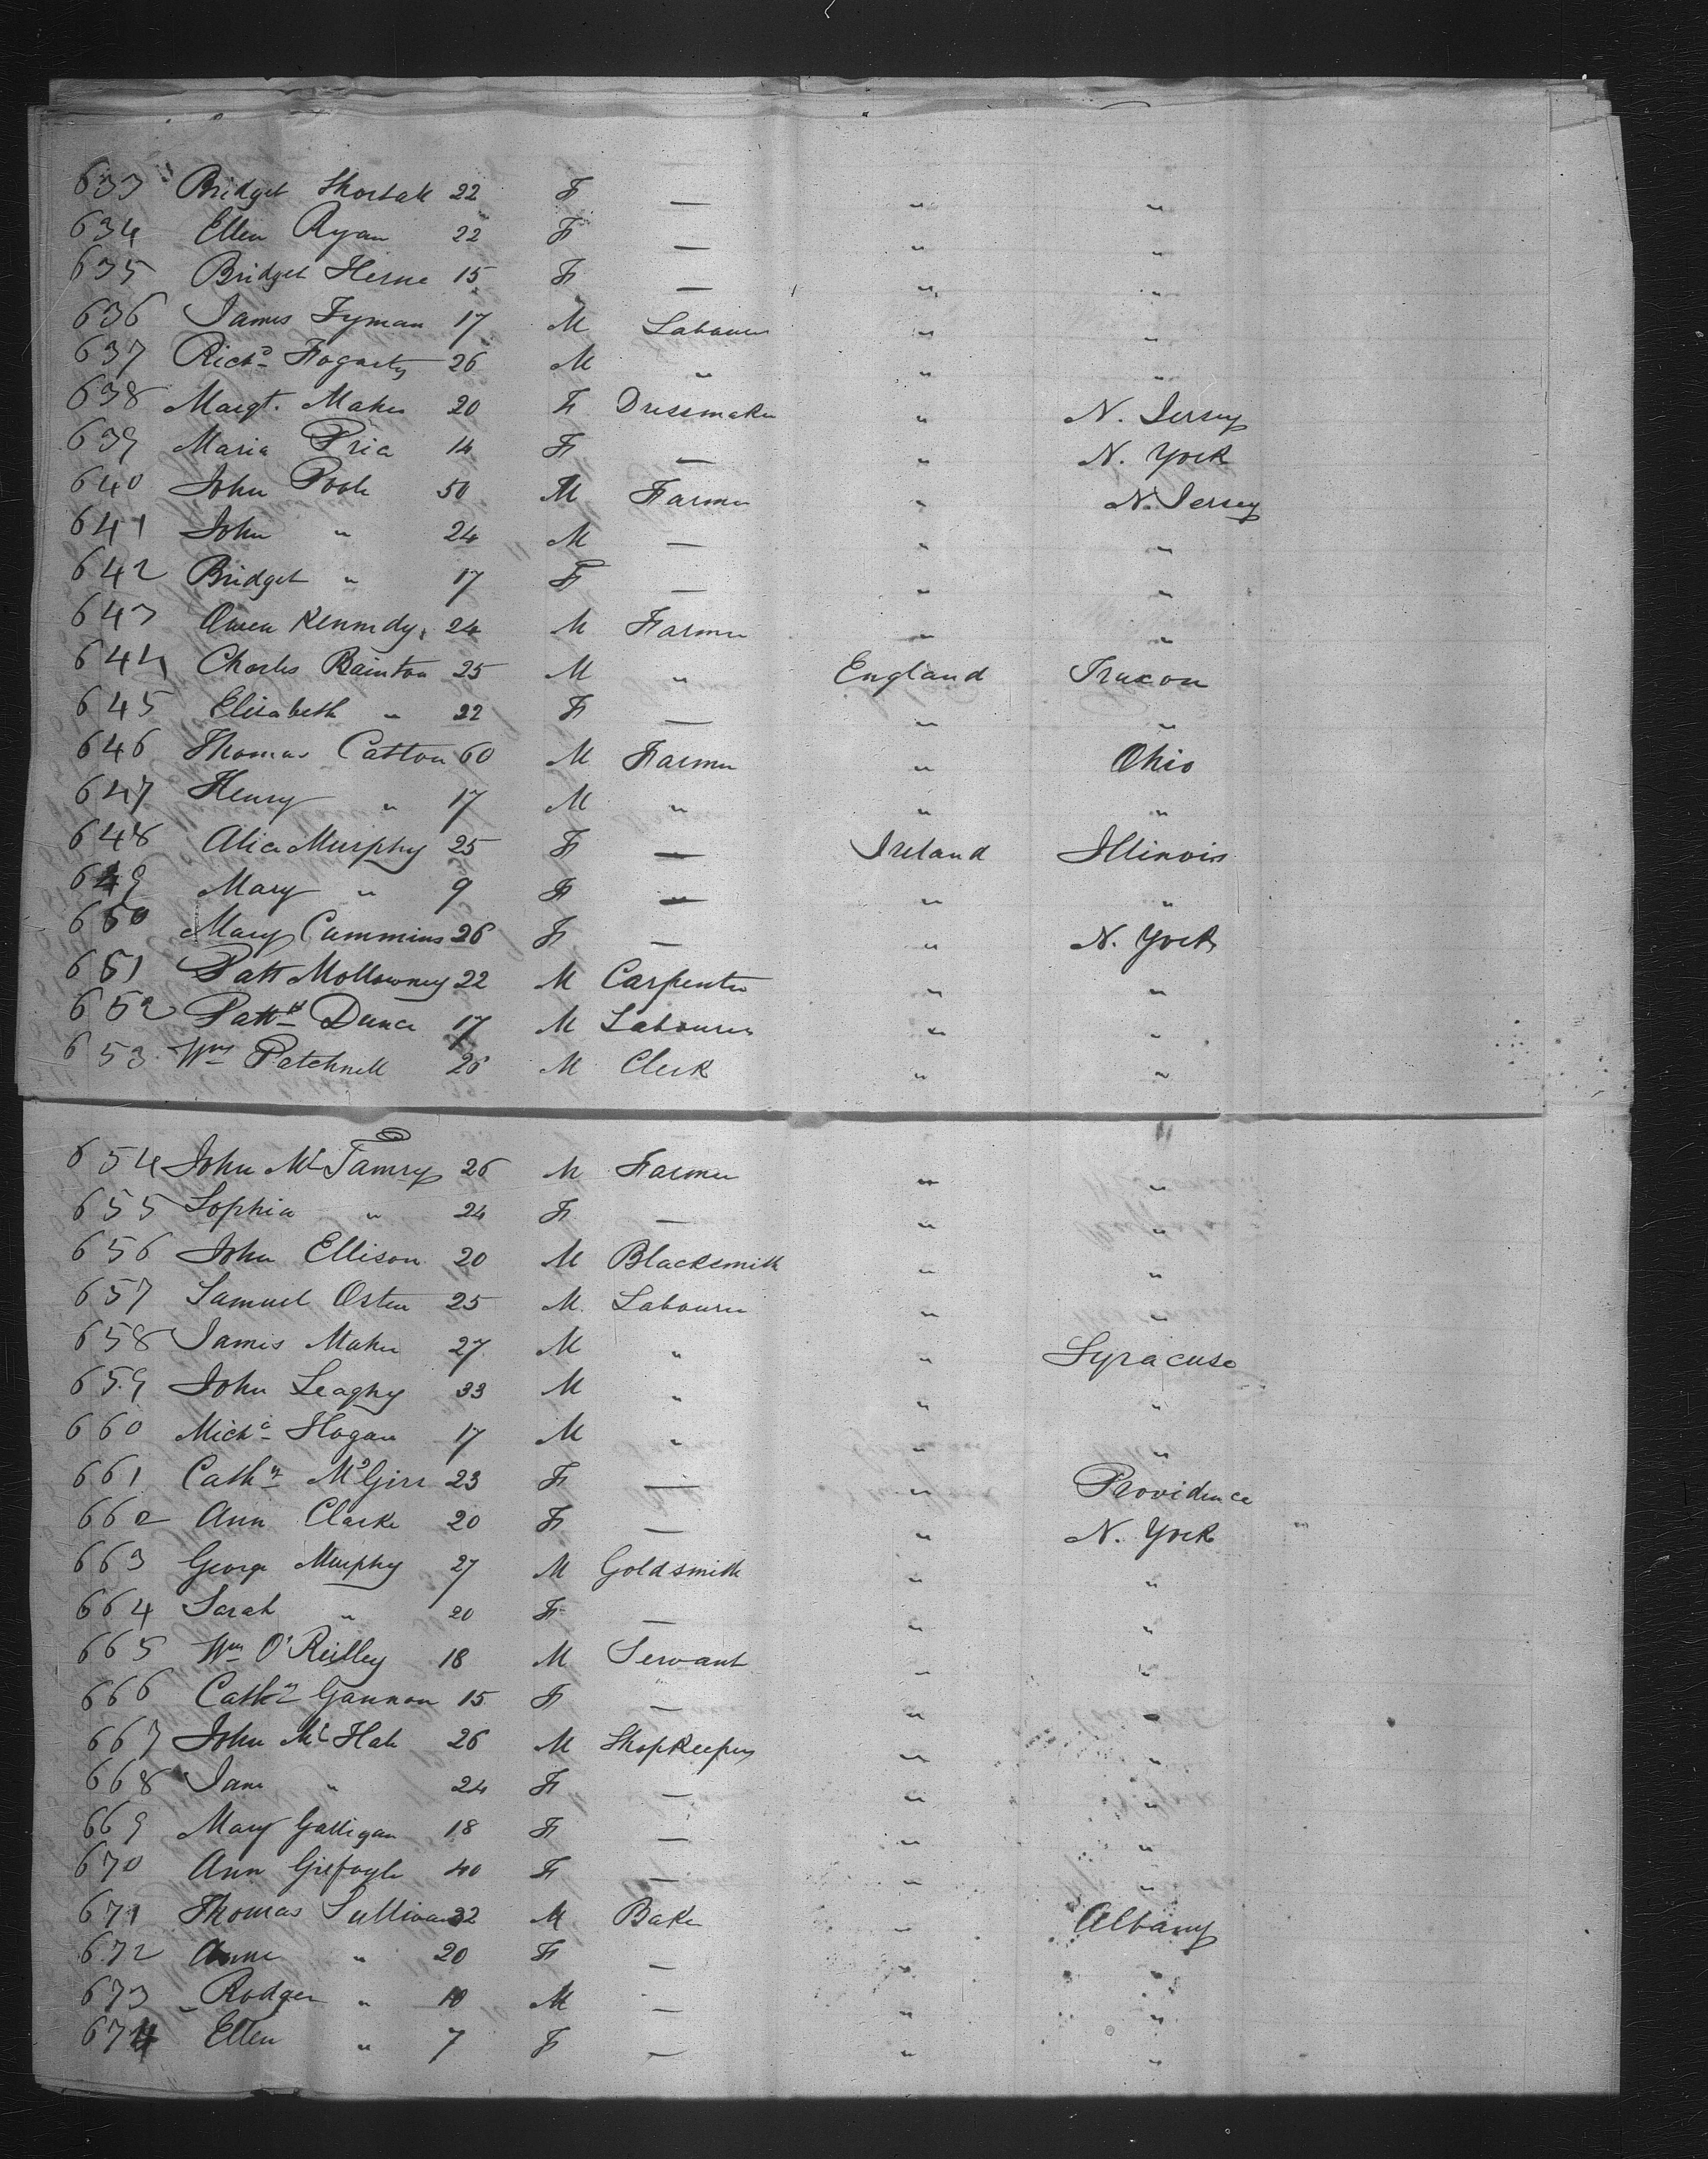 633 Bridget Shortall 22 F — " "
634 Ellen Ryan 22 F — " "
635 Bridget Herne 15 F — " "
636 James Tyman 17 M Labourer " "
637 Richd Fogarty 26 M " " "
638 Margt. Maher 20 F Dressmaker " N. Jersey
639 Maria Price 14 F — " N. York
640 John Poole 50 M Farmer " N. Jersey
641 John " 24 M — " "
642 Bridget " 17 F — " "
643 Owen Kennedy 24 M Farmer " "
644 Charles Bainton 25 M " England
645 Elizabeth " 22 F — " "
646 Thomas Catton 60 M Farmer " Ohio
647 Henry " 17 M " " "
648 Alice Murphy 25 F — Ireland Illinois
649 Mary " 9 F — " "
650 Mary Cummins 26 F — " N. York
651 Patt Mollowney 22 M Carpenter " "
652 Pattk Dunce 17 M Labourer " "
653 Wm Patchnell 26 M Clerk " "
654 John 26 M Farmer " "
655 Sophia " 24 F — " "
656 John Ellison 20 M Blacksmith " "
657 Samuel Osten 25 M. Labourer " "
658 James Maher 27 M " " Syracuse
659 John Leaghy 33 M " " "
660 Michl Hogan 17 M " " "
661 Cathn McGirr 23 F — " Providence
662 Ann Clarke 20 F — " N. York
663 George Murphy 27 M Goldsmith " "
664 Sarah " 20 F — " "
665 Wm O'Reilley 18 M Servant " "
666 Cathn Gannon 15 F — " "
667 John McHale 26 M Shopkeeper " "
668 Jane " 24 F — " "
669 Mary Galligan 18 F — " "
670 Ann 40 F — " "
671 Thomas Sullivan 32 M Baker " Albany
672 Anne " 20 F — " "
673 Rodger " 10 M — " "
674 Ellen " 7 F — " "